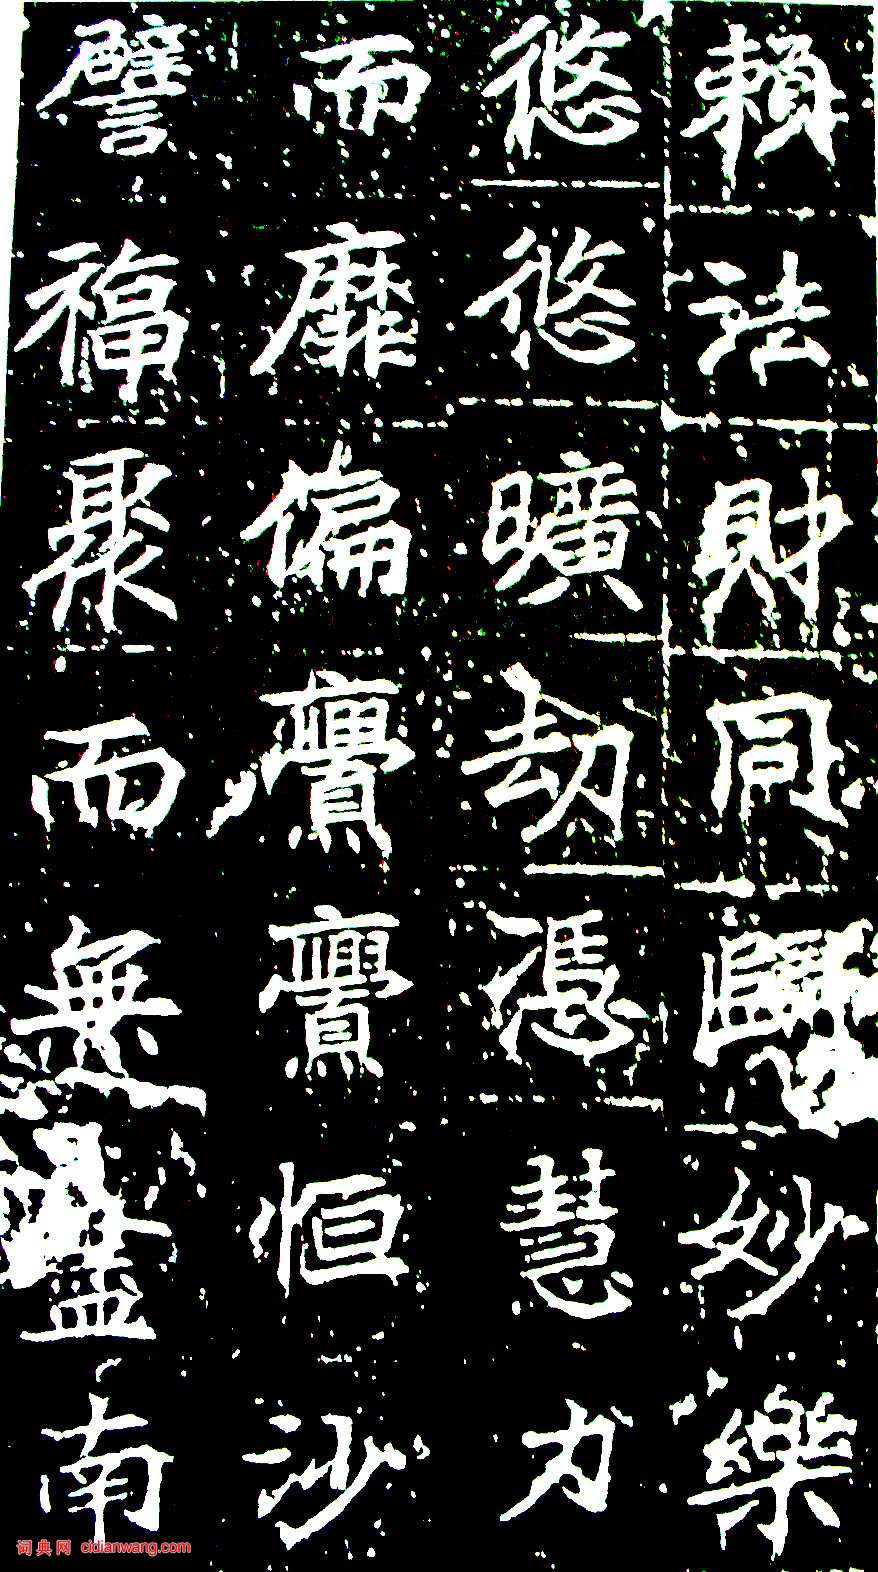 賴法財同歸妙樂
悠悠曠劫憑慧力
而靡偏亹亹恒沙
譬福聚而無盡南
词典网 cidianwang.com